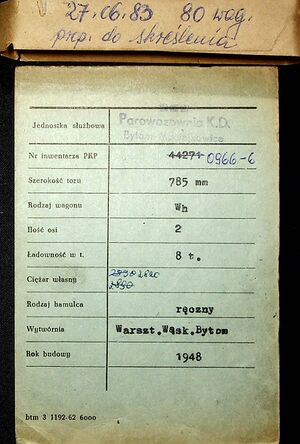 27.06.83 80 wag.
prop. do skreślenia
Jednostka służbowa
Parowozownia K.D.
Nr inwentarza PKP 44271 0966-6
Szerokość toru 785 mm
Rodzaj wagonu Wh
Ilość osi 2
Ładowność w t. 8 t.
Ciężar własny
Rodzaj hamulca ręczny
Wytwórnia Warszt.Wąsk.Bytom
Rok budowy 1948
btm 3 1192-62 6000